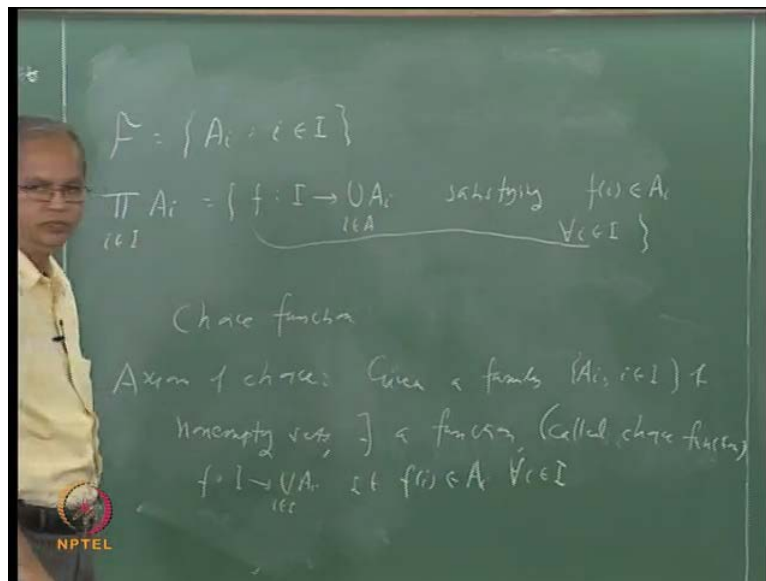 F = { A_i : i ∈ I }
∏_{i∈I} A_i = { f : I → ∪_{i∈A} A_i satisfying f(i) ∈ A_i
∀ i ∈ I }
Choice function
Axiom of choice: Given a family {A_i, i ∈ I} of
nonempty sets, ∃ a function, (called choice function)
f : I → ∪_{i∈I} A_i s.t f(i) ∈ A_i ∀ i ∈ I
NPTEL